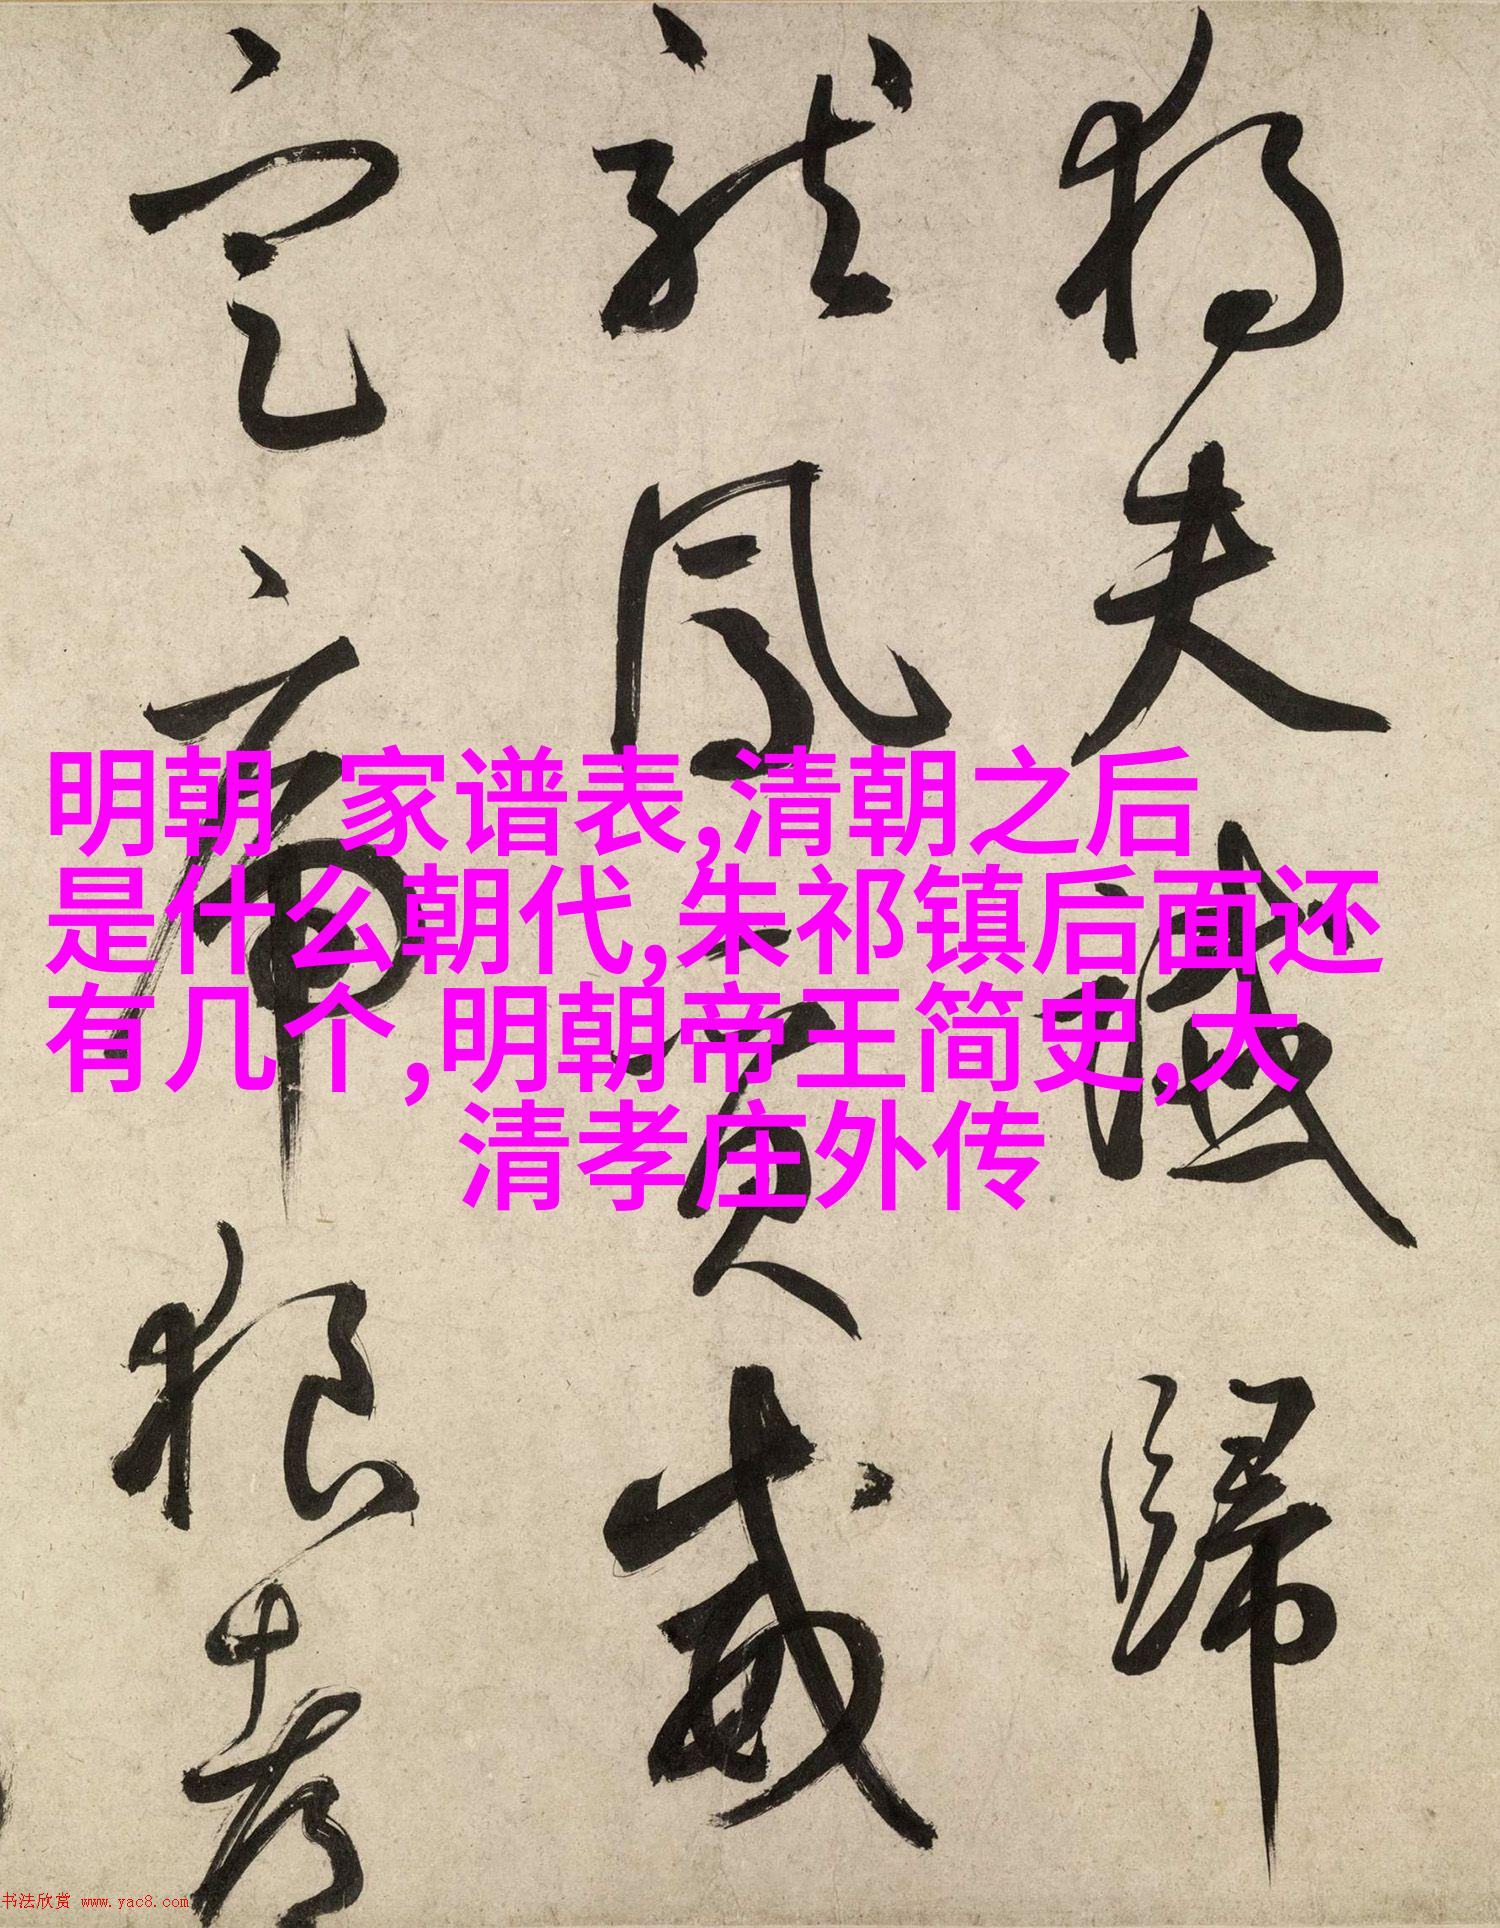 夫 歸
龍鳳
定帝
明朝 家谱表,清朝之后
是什么朝代,朱祁镇后面还
有几个,明朝帝王简史,大
清孝庄外传
书法欣赏 www.yac8.com